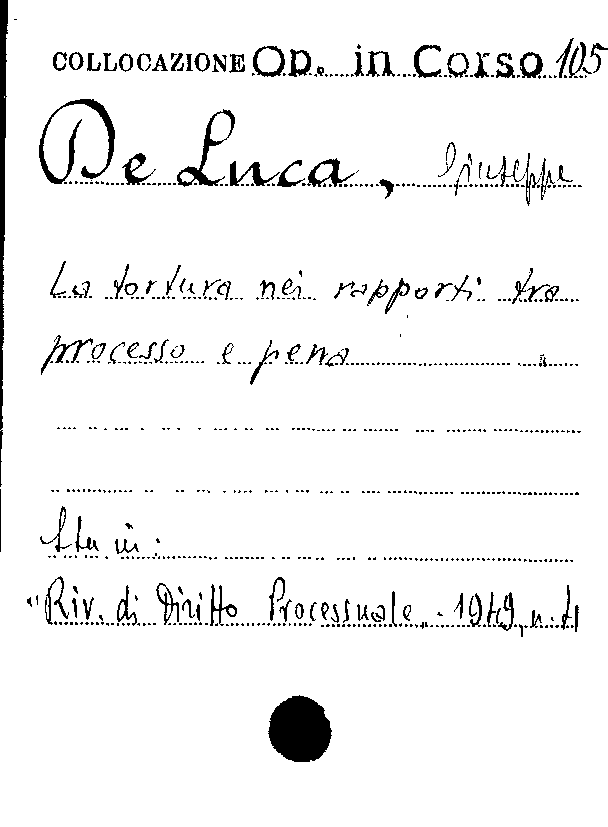 COLLOCAZIONE Op. in Corso 105
De Luca, Giuseppe
La tortura nei rapporti tra
processo e pena
Sta in:
"Riv. di Diritto Processuale„ - 1949, n. 4